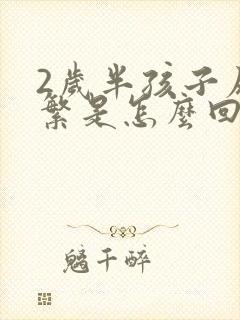 2歲半孩子
繁是怎麼回
魑千醉